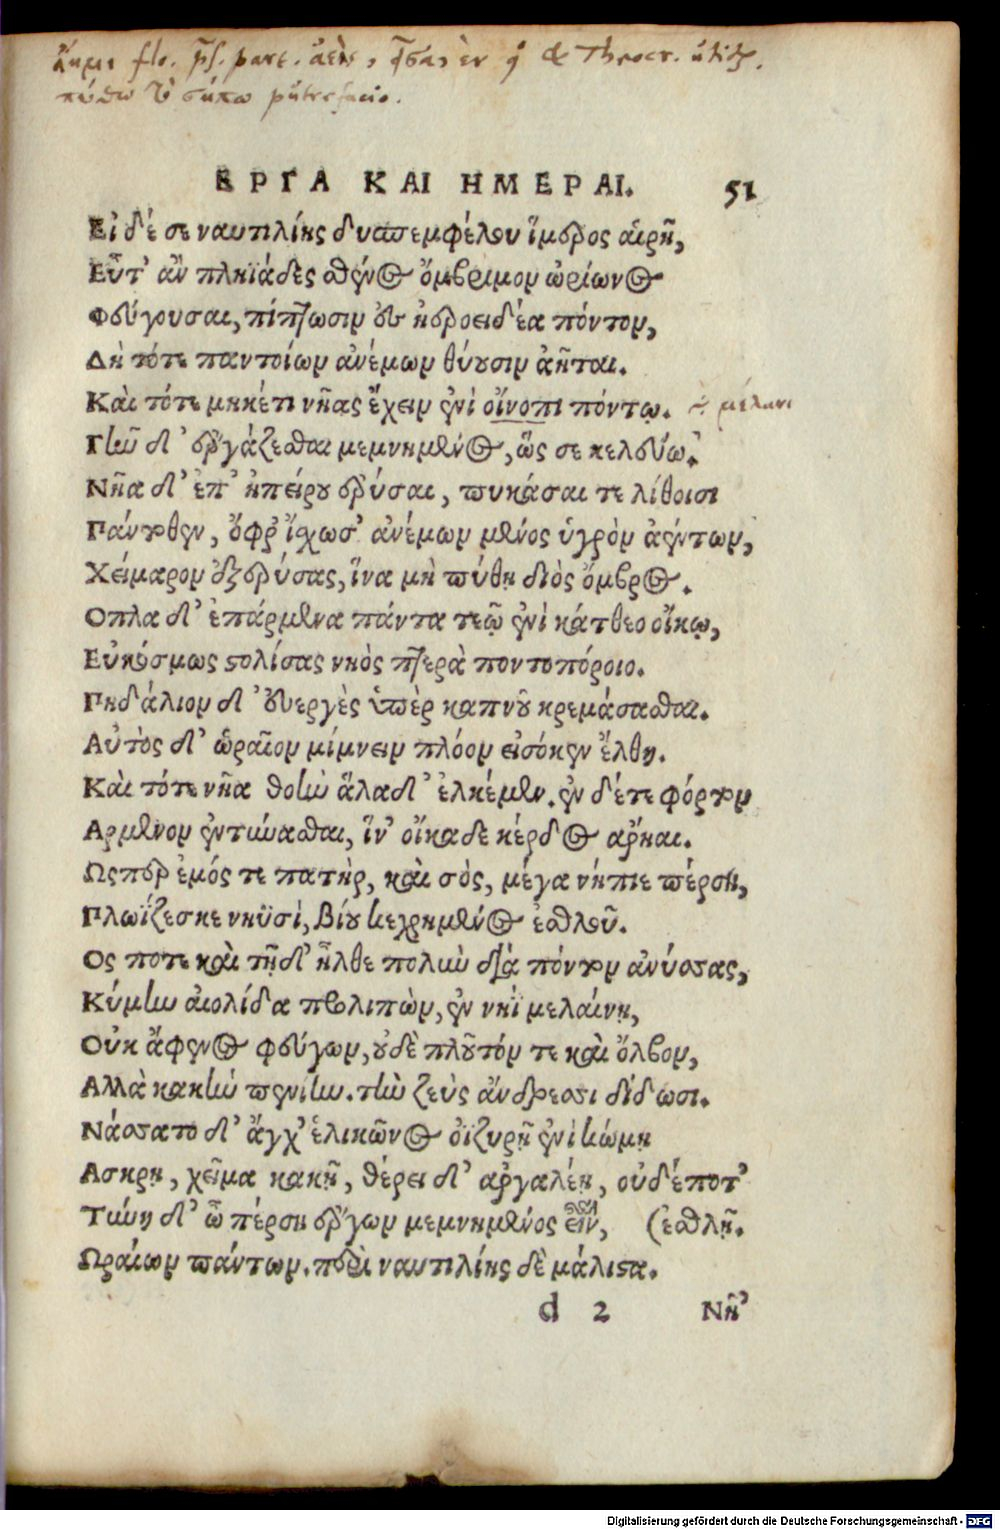 ἄημι flo. pſ. part. ἀεὶς, & Theocr. utitur.
πύθω & σήπω putrefacio.
ΕΡΓΑ ΚΑΙ ΗΜΕΡΑΙ. 51
Εἰ δέ σε ναυτιλίης δυσπεμφέλου ἵμερος αἱρῆ,
Εὖτ' ἂν πληϊάδες σθένος ὄμβριμον ὠρίωνος
Φεύγουσαι, πίπτωσιν ἐς ἠεροειδέα πόντον,
Δὴ τότε παντοίων ἀνέμων θύουσιν ἀῆται.
Καὶ τότε μηκέτι νῆας ἔχειν ἐνὶ οἴνοπι πόντῳ. μέλανι
Γῆν δ' ἐργάζεσθαι μεμνημένος, ὥς σε κελεύω.
Νῆα δ' ἐπ' ἠπείρου ἐρύσαι, πυκάσαι τε λίθοισι
Πάντοθεν, ὄφρ' ἴχωσ' ἀνέμων μένος ὑγρὸν ἀέντων,
Χείμαρον ἐξερύσας, ἵνα μὴ πύθῃ διὸς ὄμβρος.
Οπλα δ' ἐπάρμενα πάντα τεῷ ἐνὶ κάτθεο οἴκῳ,
Εὐκόσμως στολίσας νηὸς πτερὰ ποντοπόροιο.
Πηδάλιον δ' ἐυεργὲς ὑπὲρ καπνοῦ κρεμάσασθαι.
Αὐτὸς δ' ὡραῖον μίμνειν πλόον εἰσόκεν ἔλθῃ.
Καὶ τότε νῆα θοὴν ἅλαδ' ἑλκέμεν. ἐν δέ τε φόρτον
Αρμενον ἐντύνασθαι, ἵν' οἴκαδε κέρδος ἄρηαι.
Ωςπερ ἐμός τε πατὴρ, καὶ σὸς, μέγα νήπιε πέρση,
Πλωΐζεσκε νηϋσὶ, βίου κεχρημένος ἐσθλοῦ.
Ος ποτε καὶ τῇδ' ἦλθε πολὺν διὰ πόντον ἀνύσσας,
Κύμην αἰολίδα προλιπὼν, ἐν νηῒ μελαίνῃ,
Οὐκ ἄφενος φεύγων, οὐδὲ πλοῦτόν τε καὶ ὄλβον,
Αλλὰ κακὴν πενίην. τὴν ζεὺς ἄνδρεσσι δίδωσι.
Νάσσατο δ' ἄγχ' ἑλικῶνος ὀϊζυρῇ ἐνὶ κώμῃ
Ασκρῃ, χεῖμα κακῇ, θέρει δ' ἀργαλέῃ, οὐδέποτ'
Τύνη δ' ὦ πέρση ἔργων μεμνημένος εἶναι, (ἐσθλῇ.
Ωραίων πάντων. περὶ ναυτιλίης δὲ μάλιστα.
d 2 Νῆ'
Digitalisierung gefördert durch die Deutsche Forschungsgemeinschaft - DFG